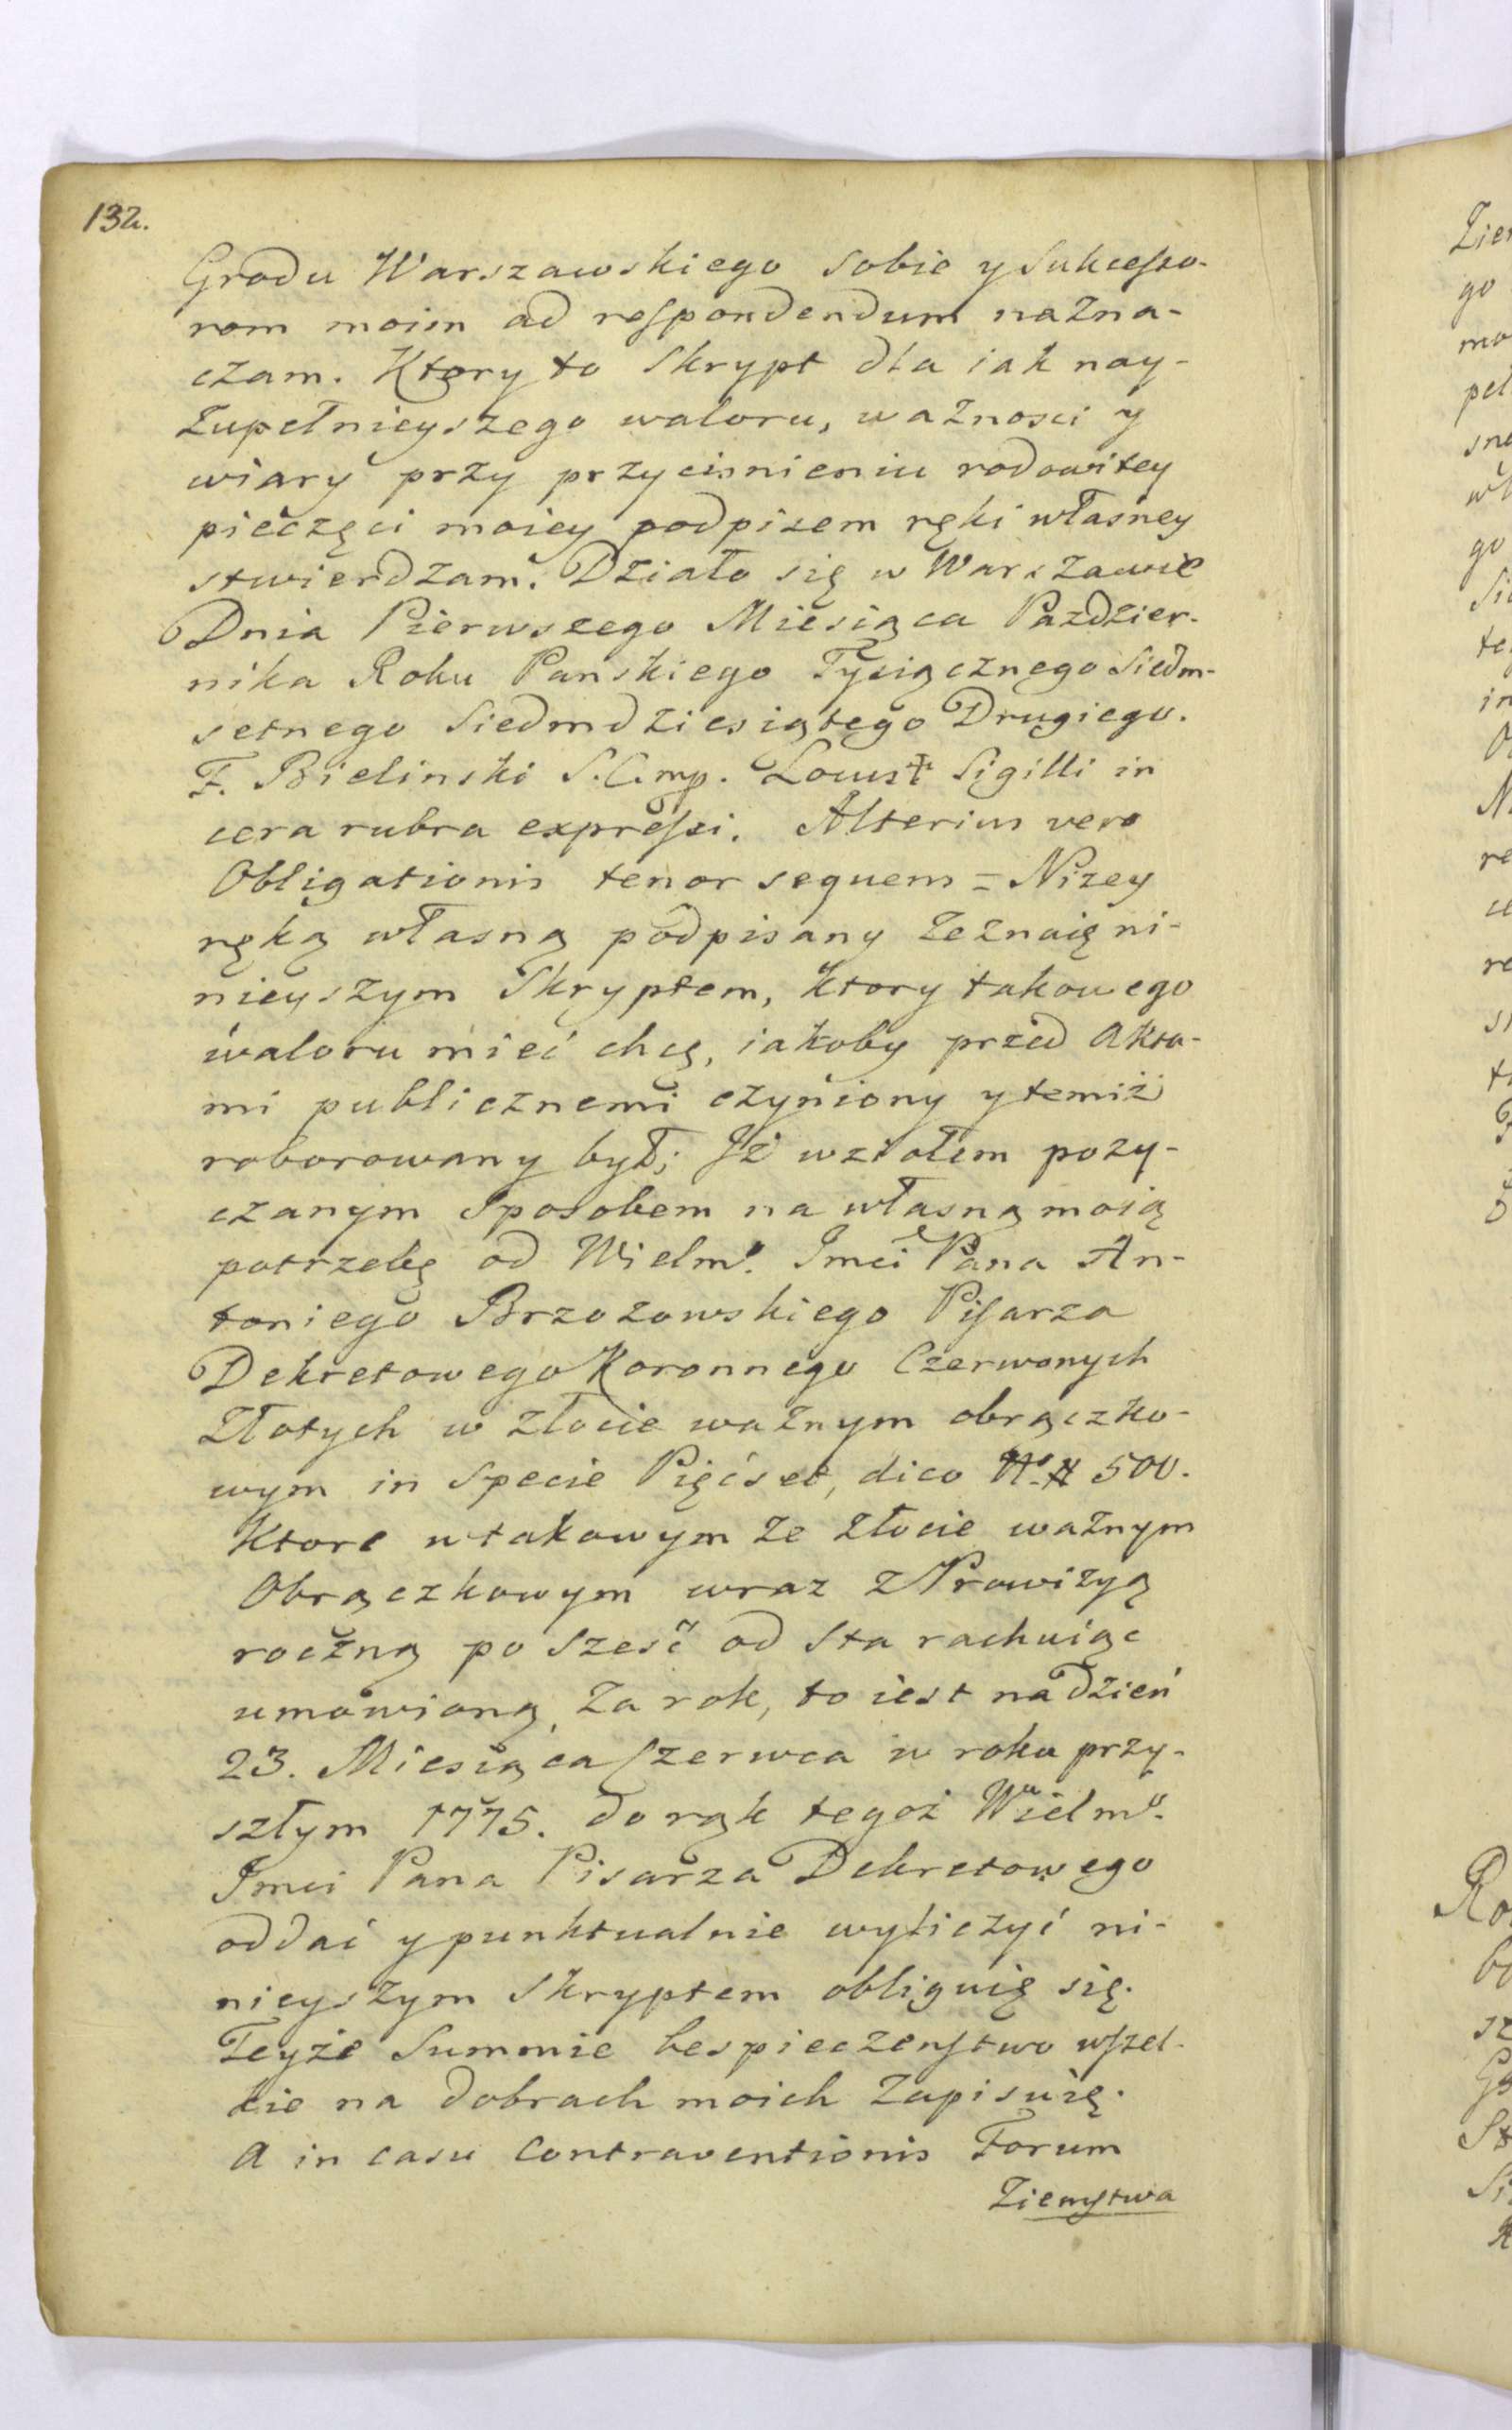 132.
Grodu Warszawskiego sobie y Sukcesso-
rom moim ad respondendum nazna-
czam. Ktory to Skrypt dla iak nay-
zupełnieyszego waloru, ważnosci y
wiary przy przycisnieniu rodowitey
pieczęci moiey podpisem ręki własney
stwierdzam. Działo się w Warszawie
Dnia Pierwszego Miesiąca Pazdzier-
nika Roku Panskiego Tysiącznego Siedm-
setnego Siedmdziesiątego Drugiego.
F. Bielinski S.C.mp. Locust Sigilli in
cera rubra expressi. Alterius vero
Obligationis tenor sequens = Nizey
ręką własną podpisany zeznaię ni-
nieyszym Skryptem, ktory takowego
waloru mieć chcę, iakoby przed Akta-
mi publicznemi czyniony y temiż
roborowany był; Iż wziołem pozy-
czanym Sposobem na własną moią
potrzebę od Wielmo. Imci Pana An-
toniego Brzozowskiego Pisarza
Dekretowego Koronnego Czerwonych
Złotych w złocie ważnym obrączko-
wym in Specie Pięćset, dico No. # 500.
Ktore w takowym ze złocie ważnym
Obrączkowym wraz z Prowizyą
roczną po szesć od Sta rachuiąc
umowioną, za rok, to iest na dzień
23. Miesiąca Czerwca w roku przy-
szłym 1775. do rąk tegoż Wielmo.
Imci Pana Pisarza Dekretowego
oddać y punktualnie wyliczyć ni-
nieyszym Skryptem obliguię się.
Teyże Summie bespieczenstwo wszel-
kie na dobrach moich zapisuię.
A in casu Contraventionis Forum
Ziemstwa